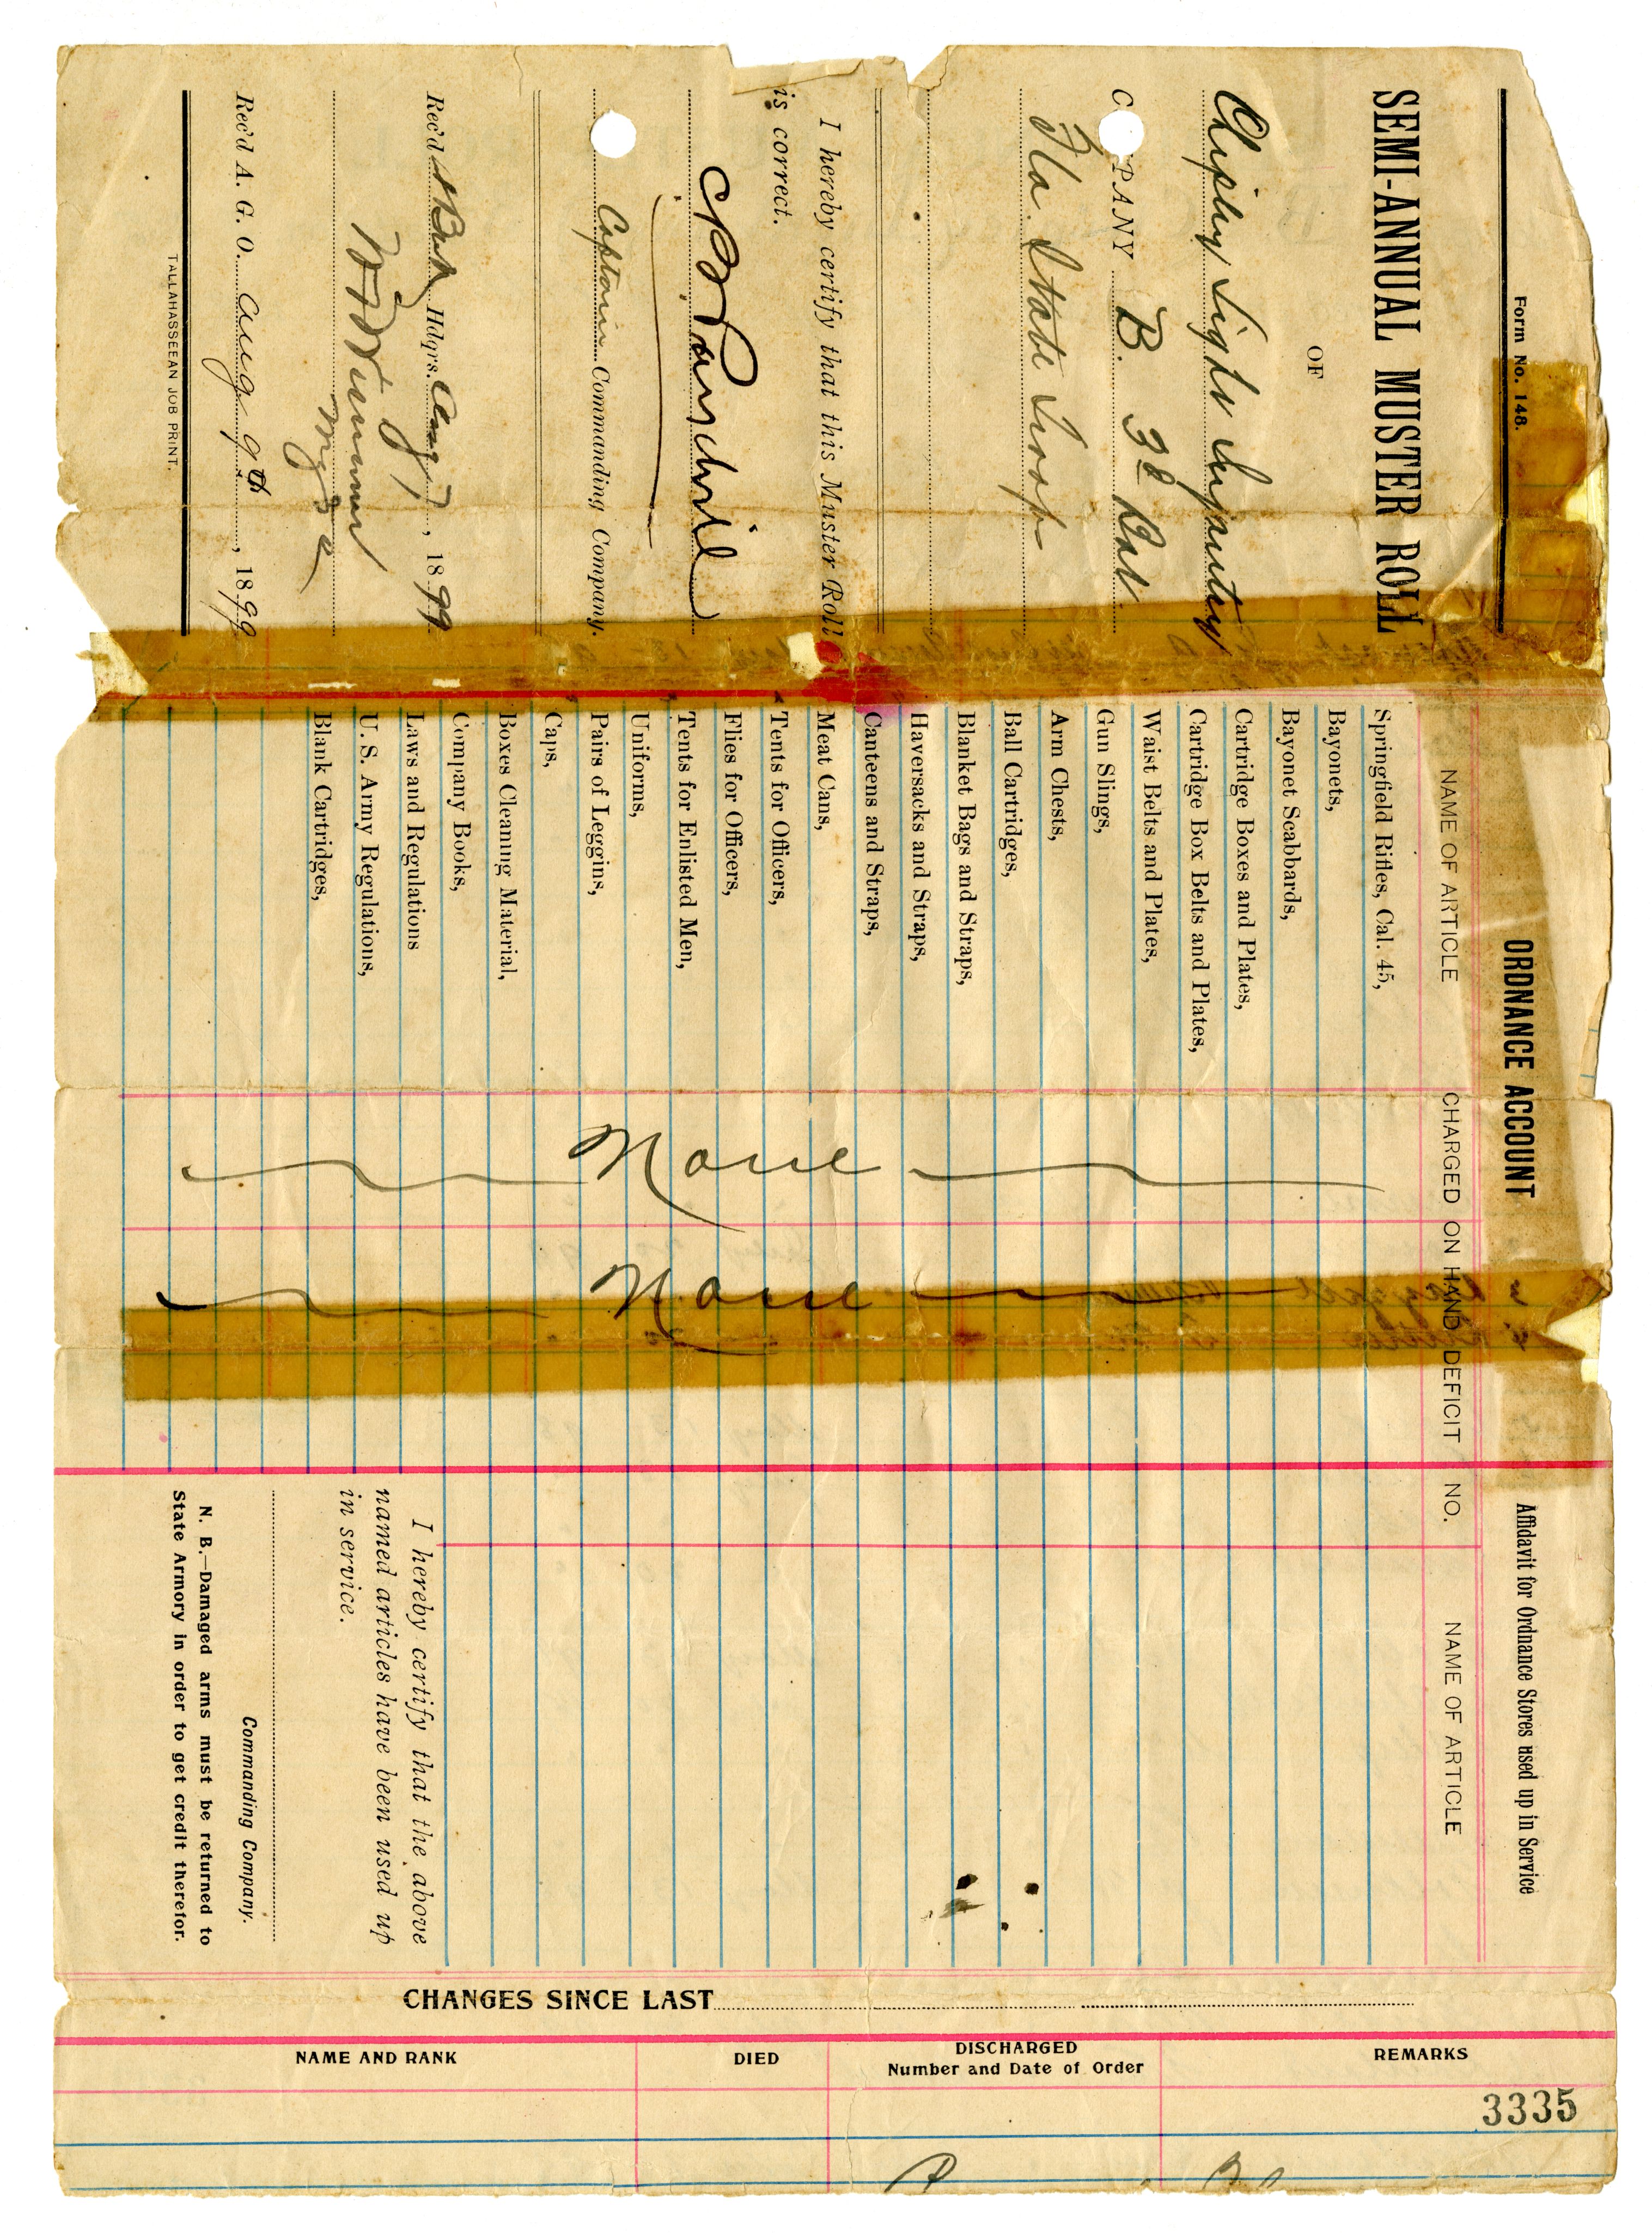 Form No. 148.
SEMI-ANNUAL MUSTER ROLL
OF
Chipley Light Infantry
C PANY B. 3d Bat.
Fla. State Troop
I hereby certify that this Muster Roll
is correct.
Captain Commanding Company.
Rec'd Hdqrs. Aug 7, 1899
Rec'd A. G. O. Aug 9th, 1899
TALLAHASSEEAN JOB PRINT.
ORDNANCE ACCOUNT
NAME OF ARTICLE CHARGED ON HAND DEFICIT
Springfield Rifles, Cal. 45,
Bayonets,
Bayonet Scabbards,
Cartridge Boxes and Plates,
Cartridge Box Belts and Plates,
Waist Belts and Plates,
Gun Slings,
Arm Chests,
Ball Cartridges,
Blanket Bags and Straps,
Haversacks and Straps,
Canteens and Straps,
Meat Cans,
Tents for Officers,
Flies for Officers,
Tents for Enlisted Men,
Uniforms,
Pairs of Leggins,
Caps,
Boxes Cleaning Material,
Company Books,
Laws and Regulations
U. S. Army Regulations,
Blank Cartridges,
None
None
Affidavit for Ordnance Stores used up in Service
NO. NAME OF ARTICLE
I hereby certify that the above
named articles have been used up
in service.
Commanding Company.
N. B.—Damaged arms must be returned to
State Armory in order to get credit therefor.
CHANGES SINCE LAST
NAME AND RANK DIED DISCHARGED REMARKS
Number and Date of Order
3335